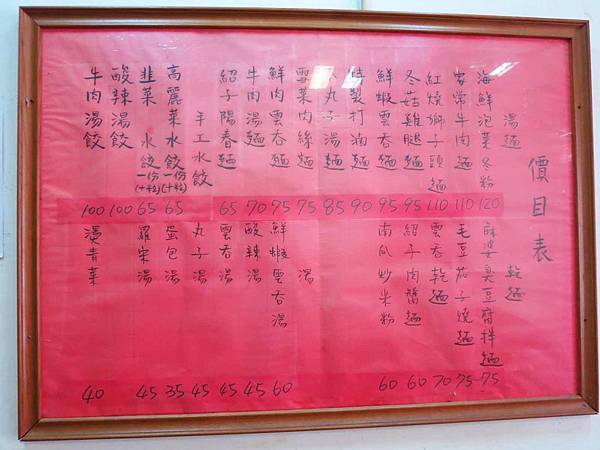 價目表
湯麵
海鮮泡菜冬粉 120
家常牛肉麵 110
紅燒獅子頭麵 110
冬菇雞腿麵 95
鮮蝦雲吞麵 95
特製打滷麵 90
丸子湯麵 85
雪菜肉絲麵 75
鮮肉雲吞麵 75
牛肉湯麵 70
紹子陽春麵 65
手工水餃
高麗菜水餃 一份(十粒) 65
韭菜水餃 一份(十粒) 65
酸辣湯餃 100
牛肉湯餃 100
乾麵
麻婆臭豆腐拌麵 75
毛豆茄子燒麵 75
雲吞乾麵 70
紹子肉醬麵 60
南瓜炒米粉 60
湯
鮮蝦雲吞湯 60
酸辣湯 45
雲吞湯 45
丸子湯 45
蛋包湯 35
羅宋湯 45
燙青菜 40